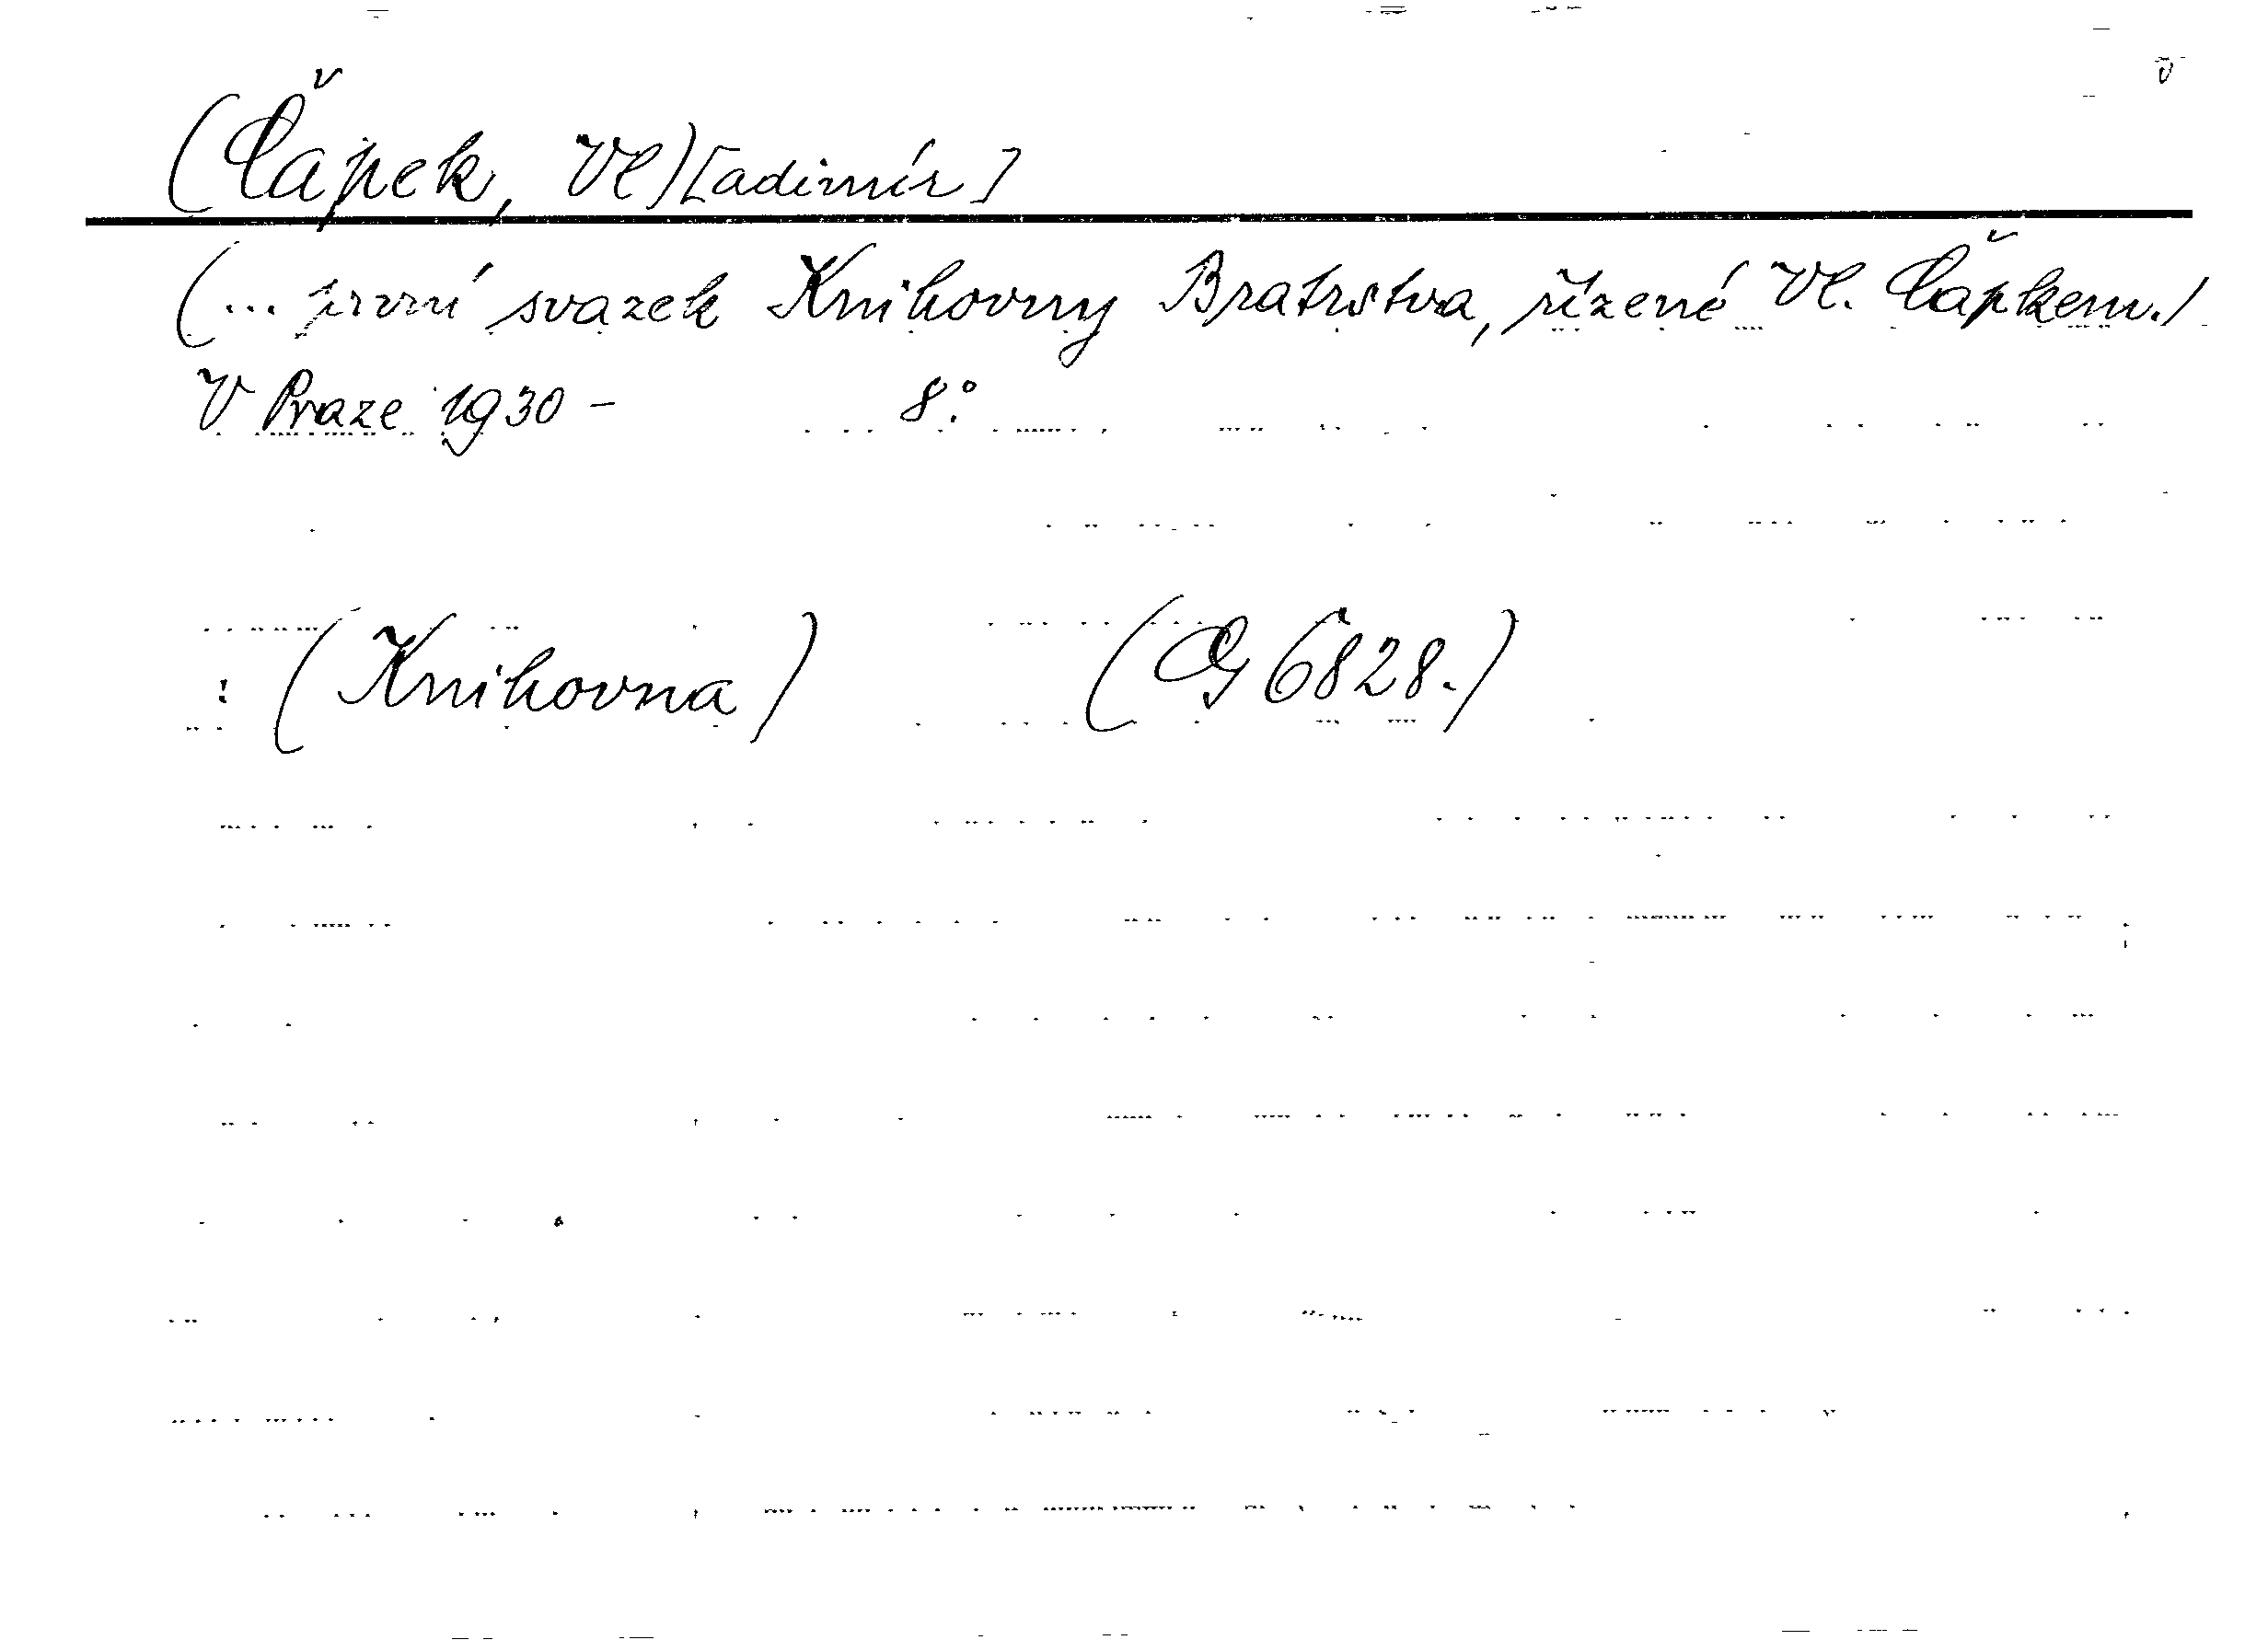 (Čapek, Vl)[adimír]
(... první svazek Knihovny Bratrstva, řízené Vl. Čapkem.)
V Praze 1930 - 8°.
: (Knihovna) (G 6828.)